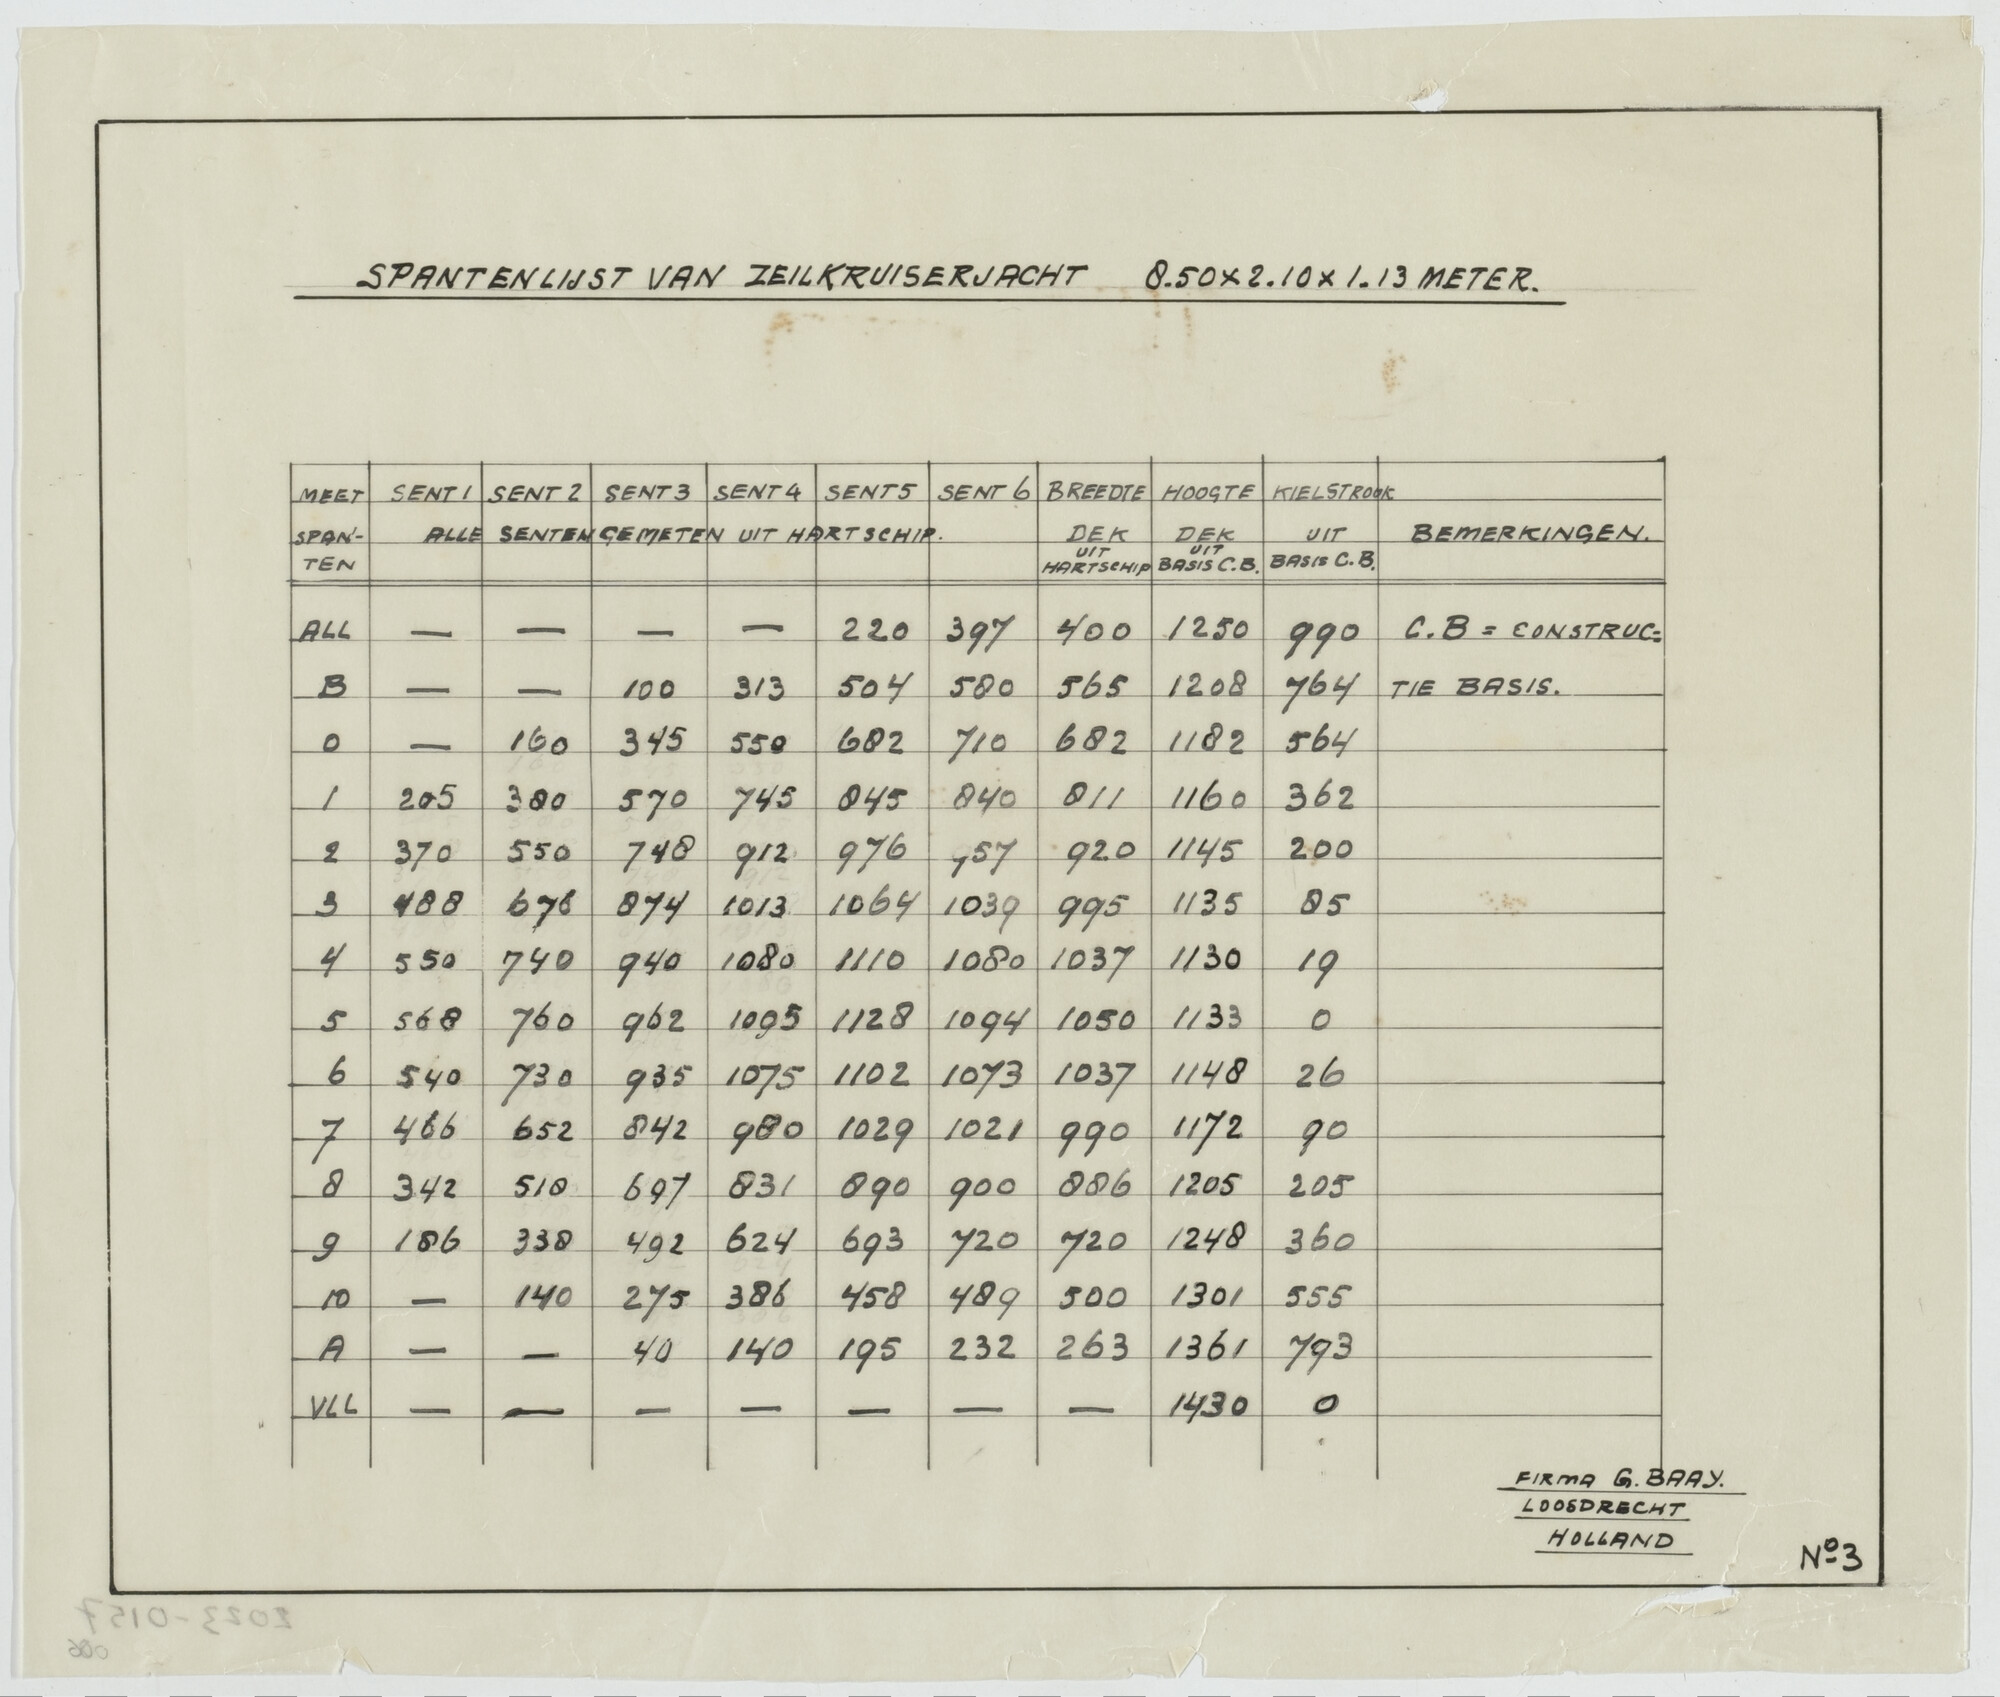 SPANTENLIJST VAN ZEILKRUISERJACHT 8.50 x 2.10 x 1.13 METER.
MEET SENT 1 SENT 2 SENT 3 SENT 4 SENT 5 SENT 6 BREEDTE HOOGTE KIELSTROOK
SPAN'- ALLE SENTEN GEMETEN UIT HARTSCHIP. DEK DEK UIT BEMERKINGEN.
UIT UIT
TEN HARTSCHIP BASIS C.B. BASIS C.B.
ALL — — — — 220 397 400 1250 990 C.B = CONSTRUC=
B — — 100 313 504 580 565 1208 764 TIE BASIS.
0 — 160 345 550 682 710 682 1182 564
1 205 380 570 745 845 840 811 1160 362
2 370 550 748 912 976 957 920 1145 200
3 488 676 874 1013 1064 1039 995 1135 85
4 550 740 940 1080 1110 1080 1037 1130 19
5 568 760 962 1095 1128 1094 1050 1133 0
6 540 730 935 1075 1102 1073 1037 1148 26
7 466 652 842 980 1029 1021 990 1172 90
8 342 510 697 831 890 900 886 1205 205
9 186 338 492 624 693 720 720 1248 360
10 — 140 275 386 458 489 500 1301 555
A — — 40 140 195 232 263 1361 793
VLL — — — — — — — 1430 0
FIRMA G. BAAY.
LOOSDRECHT
HOLLAND
Nº 3
2023-0157
006